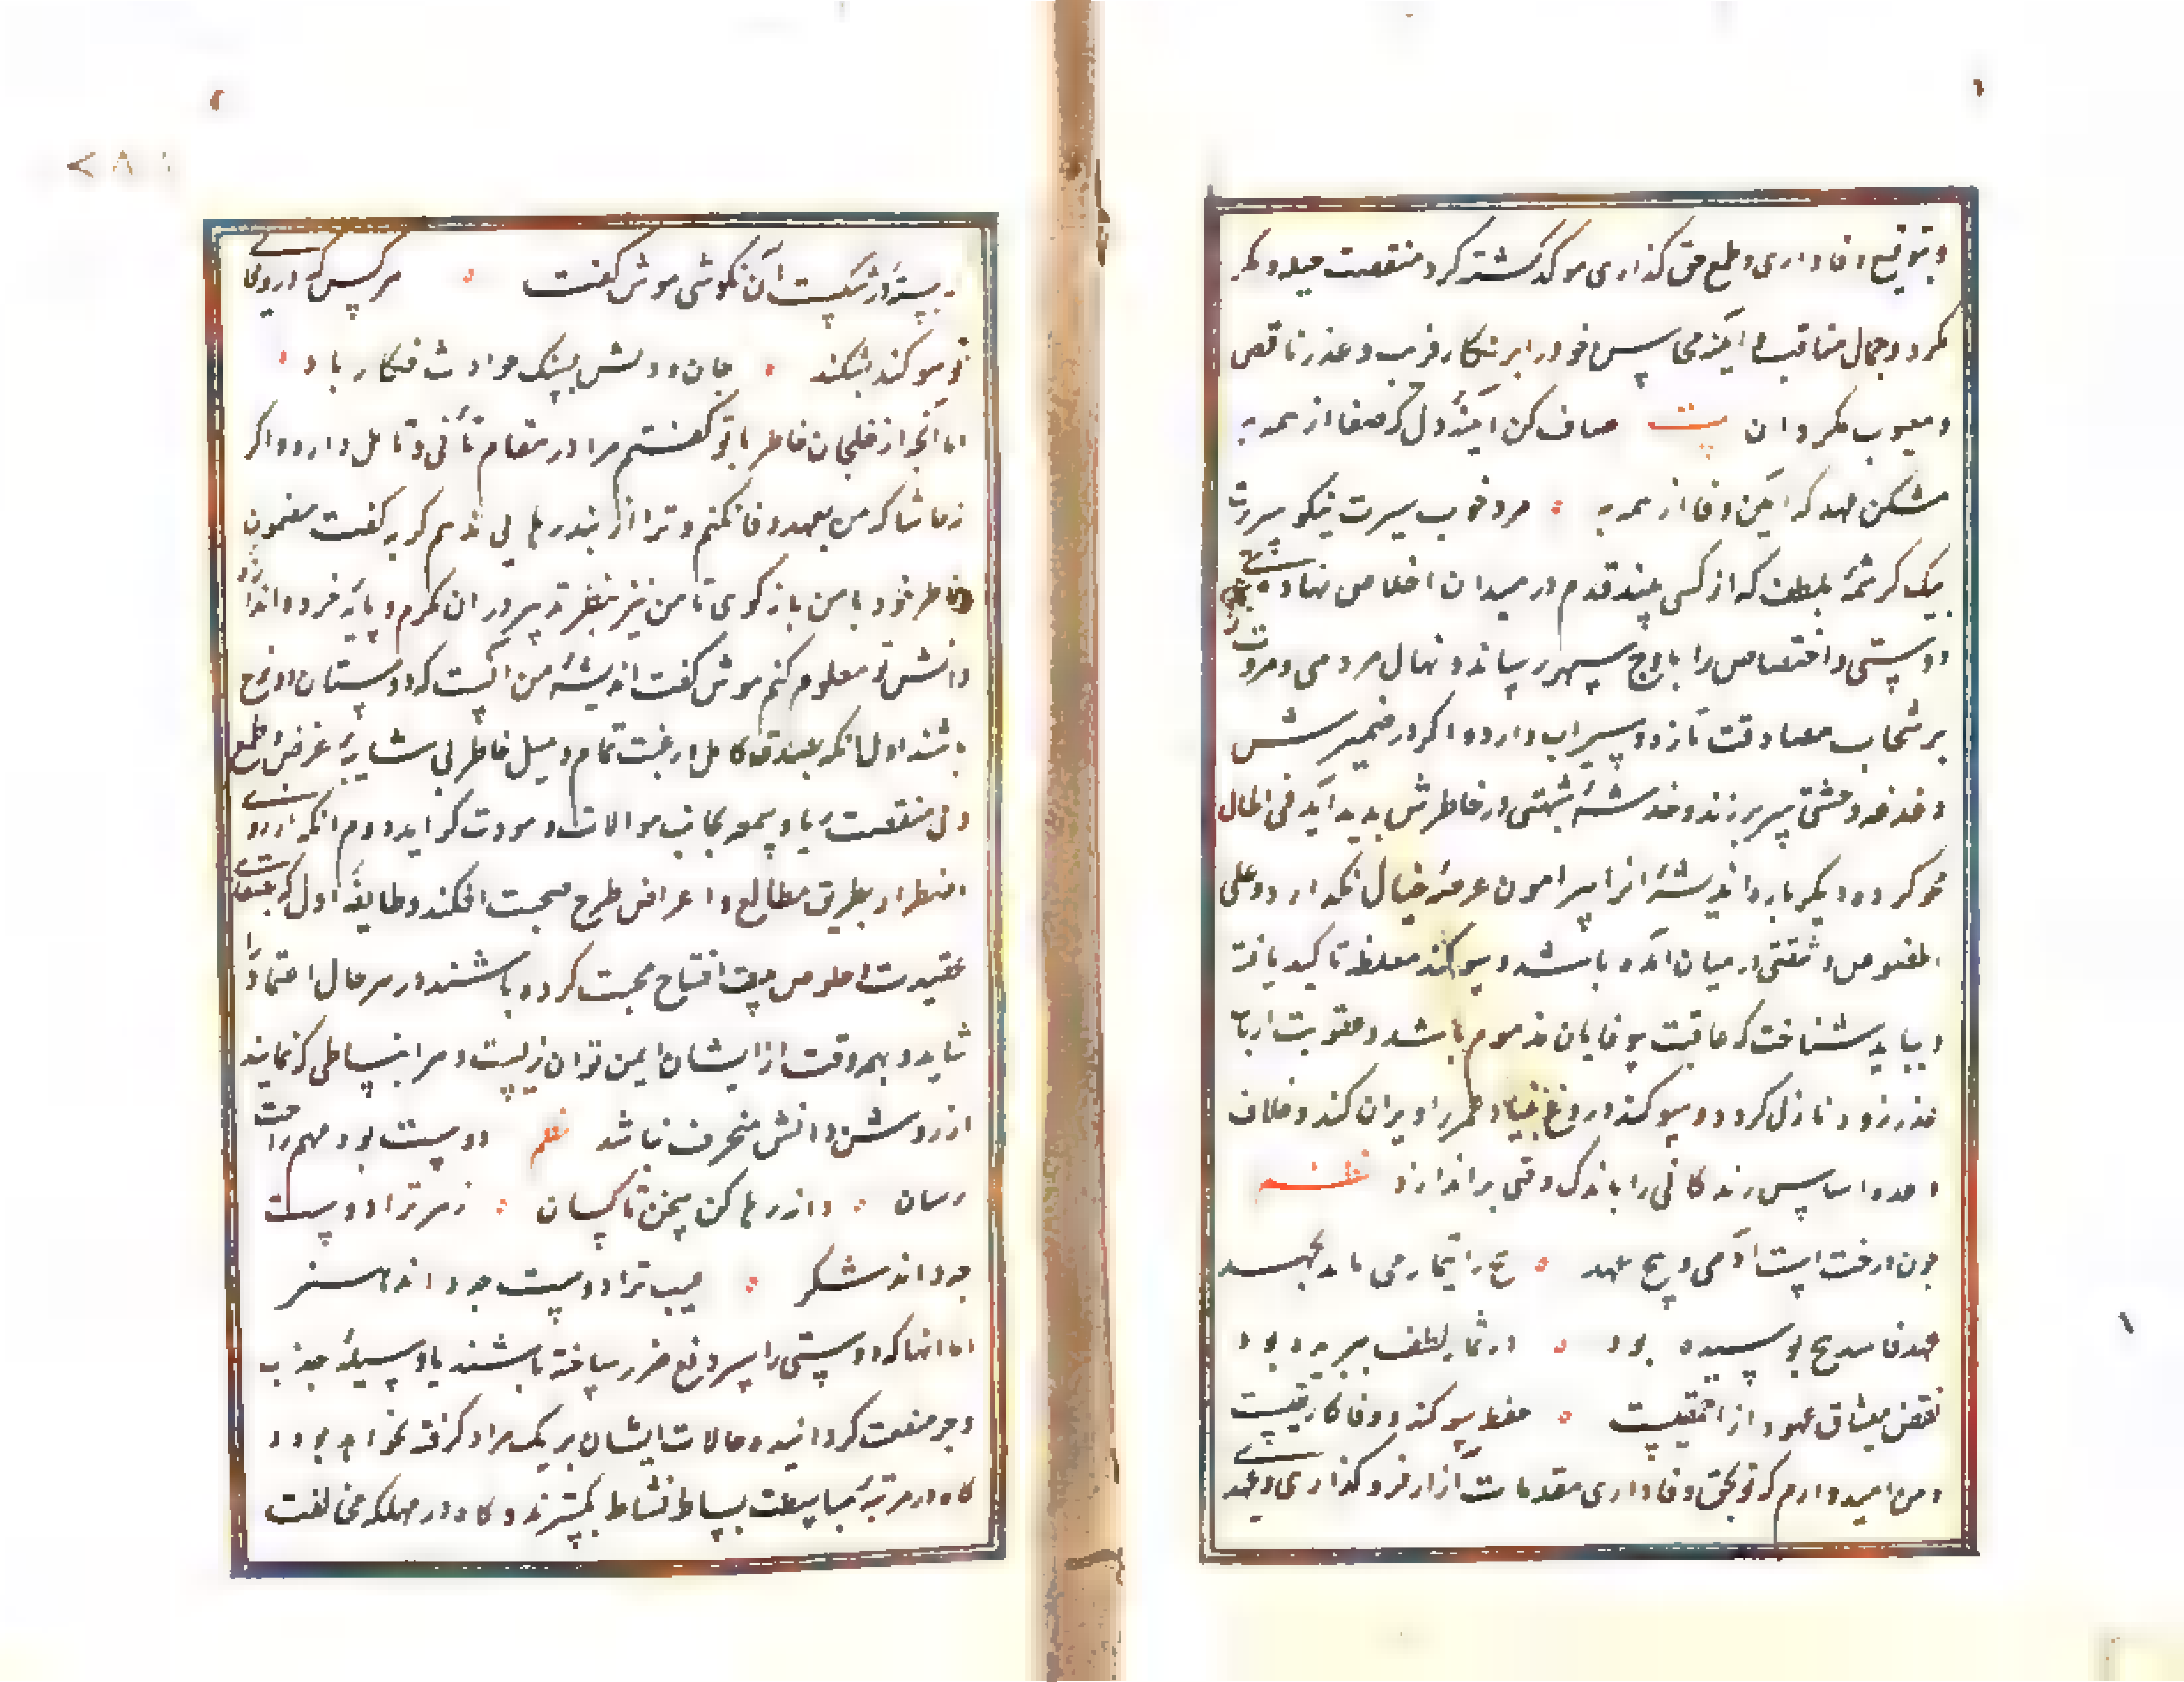 و بتوقع وفاداری و طمع حق گذاری موکد گشته گردد منقصت حیله و مکر
مکرد و جمال مناقب را آینه محاسن خود را بر نگار فریب و عذر ناقص
و معیوب مکردان بیت صاف کن آینه دل که صفا از همه به
مشکن عهد که آیین وفا از همه به مرد خوب سیرت نیکو سریرت
بیک کرشمه بلطف که از کسی بیند قدم در میدان اخلاص نهاده
دوستی و اختصاص را باوج سپهر رساند و نهال مردمی و مروت
بر شحاب مصادقت تازه و سیراب دارد و اگر در ضمیرش
دغدغه وحشتی سر برزند و خدشه شبهتی در خاطرش بدید آید فی الحال
محو کرده دیگر باره اندیشه آنرا پیرامون عرصه خیال نگذارد و علی
الخصوص وثقتی در میان آمده باشد و سوگند مغلظ تاکید یافته
و بباید شناخت که عاقبت بیوفایان مذموم باشد و عقوبت ارباب
غدر زود نازل گردد و سوگند دروغ بنیاد عمر را ویران کند و خلاف
وعده اساس زندگانی را باندک وقتی براندازد نظم
چون درختست آدمی و بیخ عهد بیخ را تیمار می باید بجهد
عهد فاسد بیخ پوسیده بود در ثمار لطف ببریده بود
نقض میثاق عهود از احمقیست حفظ سوگند و وفا کار تقیست
و من امیدوارم که تو بحق وفاداری مقدمات آزار فرو گذاری و عهد
بسته را شکست آن نکوشی موش گفت هر کس که او روی
تو سوگند بشکند جان و دلش بسنگ حوادث فکار باد
اما آنچه از خلجان خاطر با تو گفتم مرا در مقام تأنی و تامل دارد و اگر
نه حاشا که من بعهد وفا نکنم و ترا از بند رهایی ندهم گربه گفت مضمون
خاطر خود با من باز گوی تا من نیز بنظر تدبیر در آن نگرم و پایه خرد و اندازه
دانش تو معلوم کنم موش گفت اندیشه من آنست که دوستان دو نوع
باشند اول آنکه بصدق کامل و رغبت تمام و میل خاطر بی شایبه غرض و طمع
و بی منقصت ریا و سمعه بجانب موالات و مودت گرایند و دوم آنکه از روی
اضطرار بطریق مطامع و اعراض طرح صحبت افکنند و طایفه اول که بصفای
عقیدت و خلوص نیت افتتاح محبت کرده باشند در هر حال اعتماد را
شاید و بهمه وقت از ایشان ایمن توان زیست و هر انبساطی که نمایند
از روش دانش منحرف نباشد نظم دوست بود مرهم راحت
رسان و از رها کن سخن ناکسان زهر ترا دوست
چه داند شکر عیب ترا دوست چه داند هنر
اما آنها که دوستی را سپر دفع ضرر ساخته باشند یا وسیله جذب
و جر منفعت گردانیده حالات ایشان بر یک مراد گرفته نخواهد بود
گاه در مرتبه مباسطت بساط نشاط بگسترند و گاه در مهلکه مخالفت